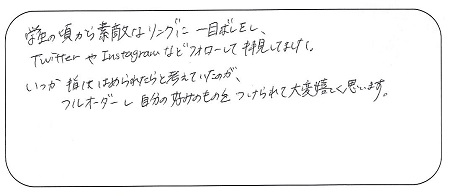 学生の頃から素敵なリングに一目ぼれし、
TwitterやInstagramなどフォローして拝見してました。
いつか指にはめられたらと考えていたのが、
フルオーダーし自分の好みのものをつけられて大変嬉しく思います。